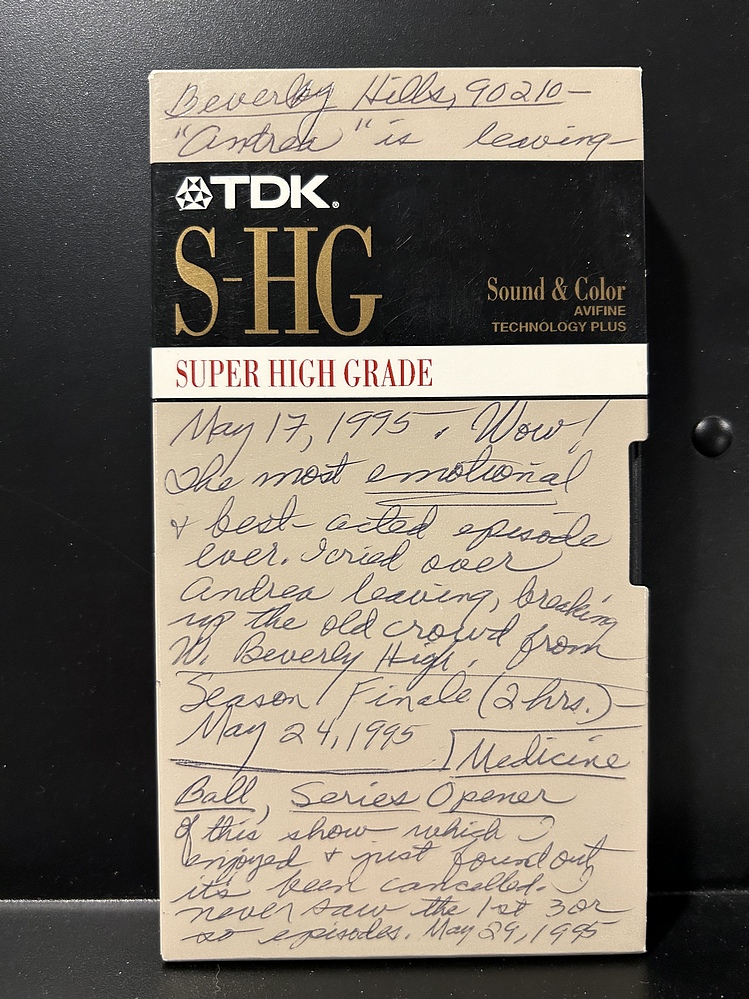 Beverly Hills, 90210-
"Andrea" is leaving-
TDK®
S-HG
Sound & Color
AVIFINE
TECHNOLOGY PLUS
SUPER HIGH GRADE
May 17, 1995. Wow!
The most emotional
& best-acted episode
ever. I cried over
Andrea leaving, breaking
up the old crowd from
W. Beverly High.
Season Finale (2 hrs.)-
May 24, 1995
Medicine
Ball, Series Opener
of this show which I
enjoyed & just found out
it's been cancelled. I
never saw the 1st 3 or
so episodes. May 29, 1995